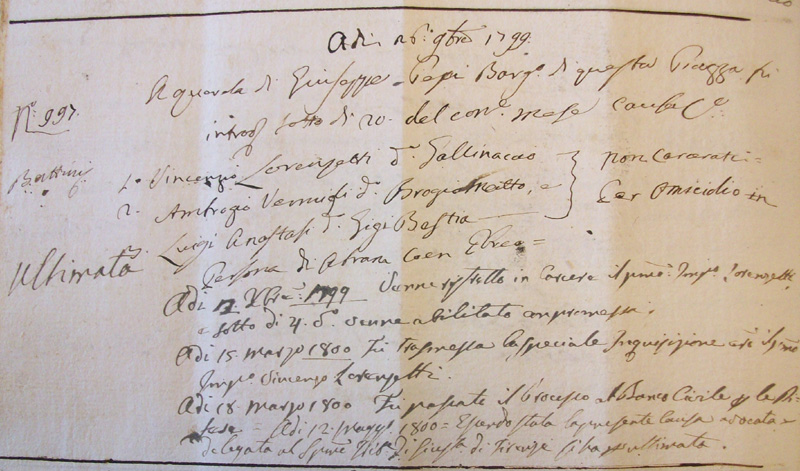 Adi 26: 9bre 1799.
N.° 997.
A querela di Giuseppe Pepi Barg.° di questa Piazza fu
introd. sotto di 20. del corr.e mese causa C.a
Battini
1.° Vincenzo Lorenzetti d.° Gallinacao
2. Ambrogio Vernigli d.° Brogiometto, e
non Carcerati =
Per Omicidio in
Luigi Anastasi d.° Gigi Bestia
Persona di Abram Coen Ebreo =
Ultimata
Adi 12 Xbre: 1799 Venne ristretto in Carcere il prime. Imp.° Lorenzetti,
e sotto di 4. d.° venne abilitato con promessa.
Adi 15 marzo 1800 Fù trasmessa la speciale Inquisizione con il
Imp.° Vincenzo Lorenzetti.
Adi 18. marzo 1800 Fù passato il Processo al Banco Civile p le Di=
fese = Adi 12. Magg.° 1800 = Essendo stata la presente Causa avocata e
delegata al Trib.e di Giust. di Firenze si ha per ultimata.